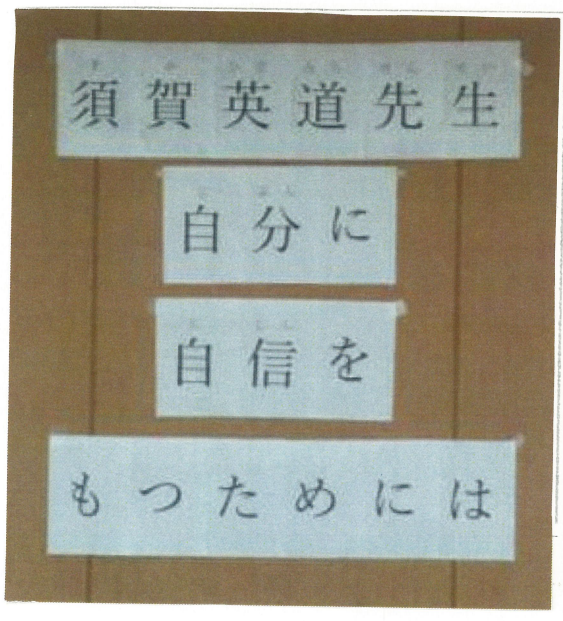 須賀英道先生
自分に
自信を
もつためには